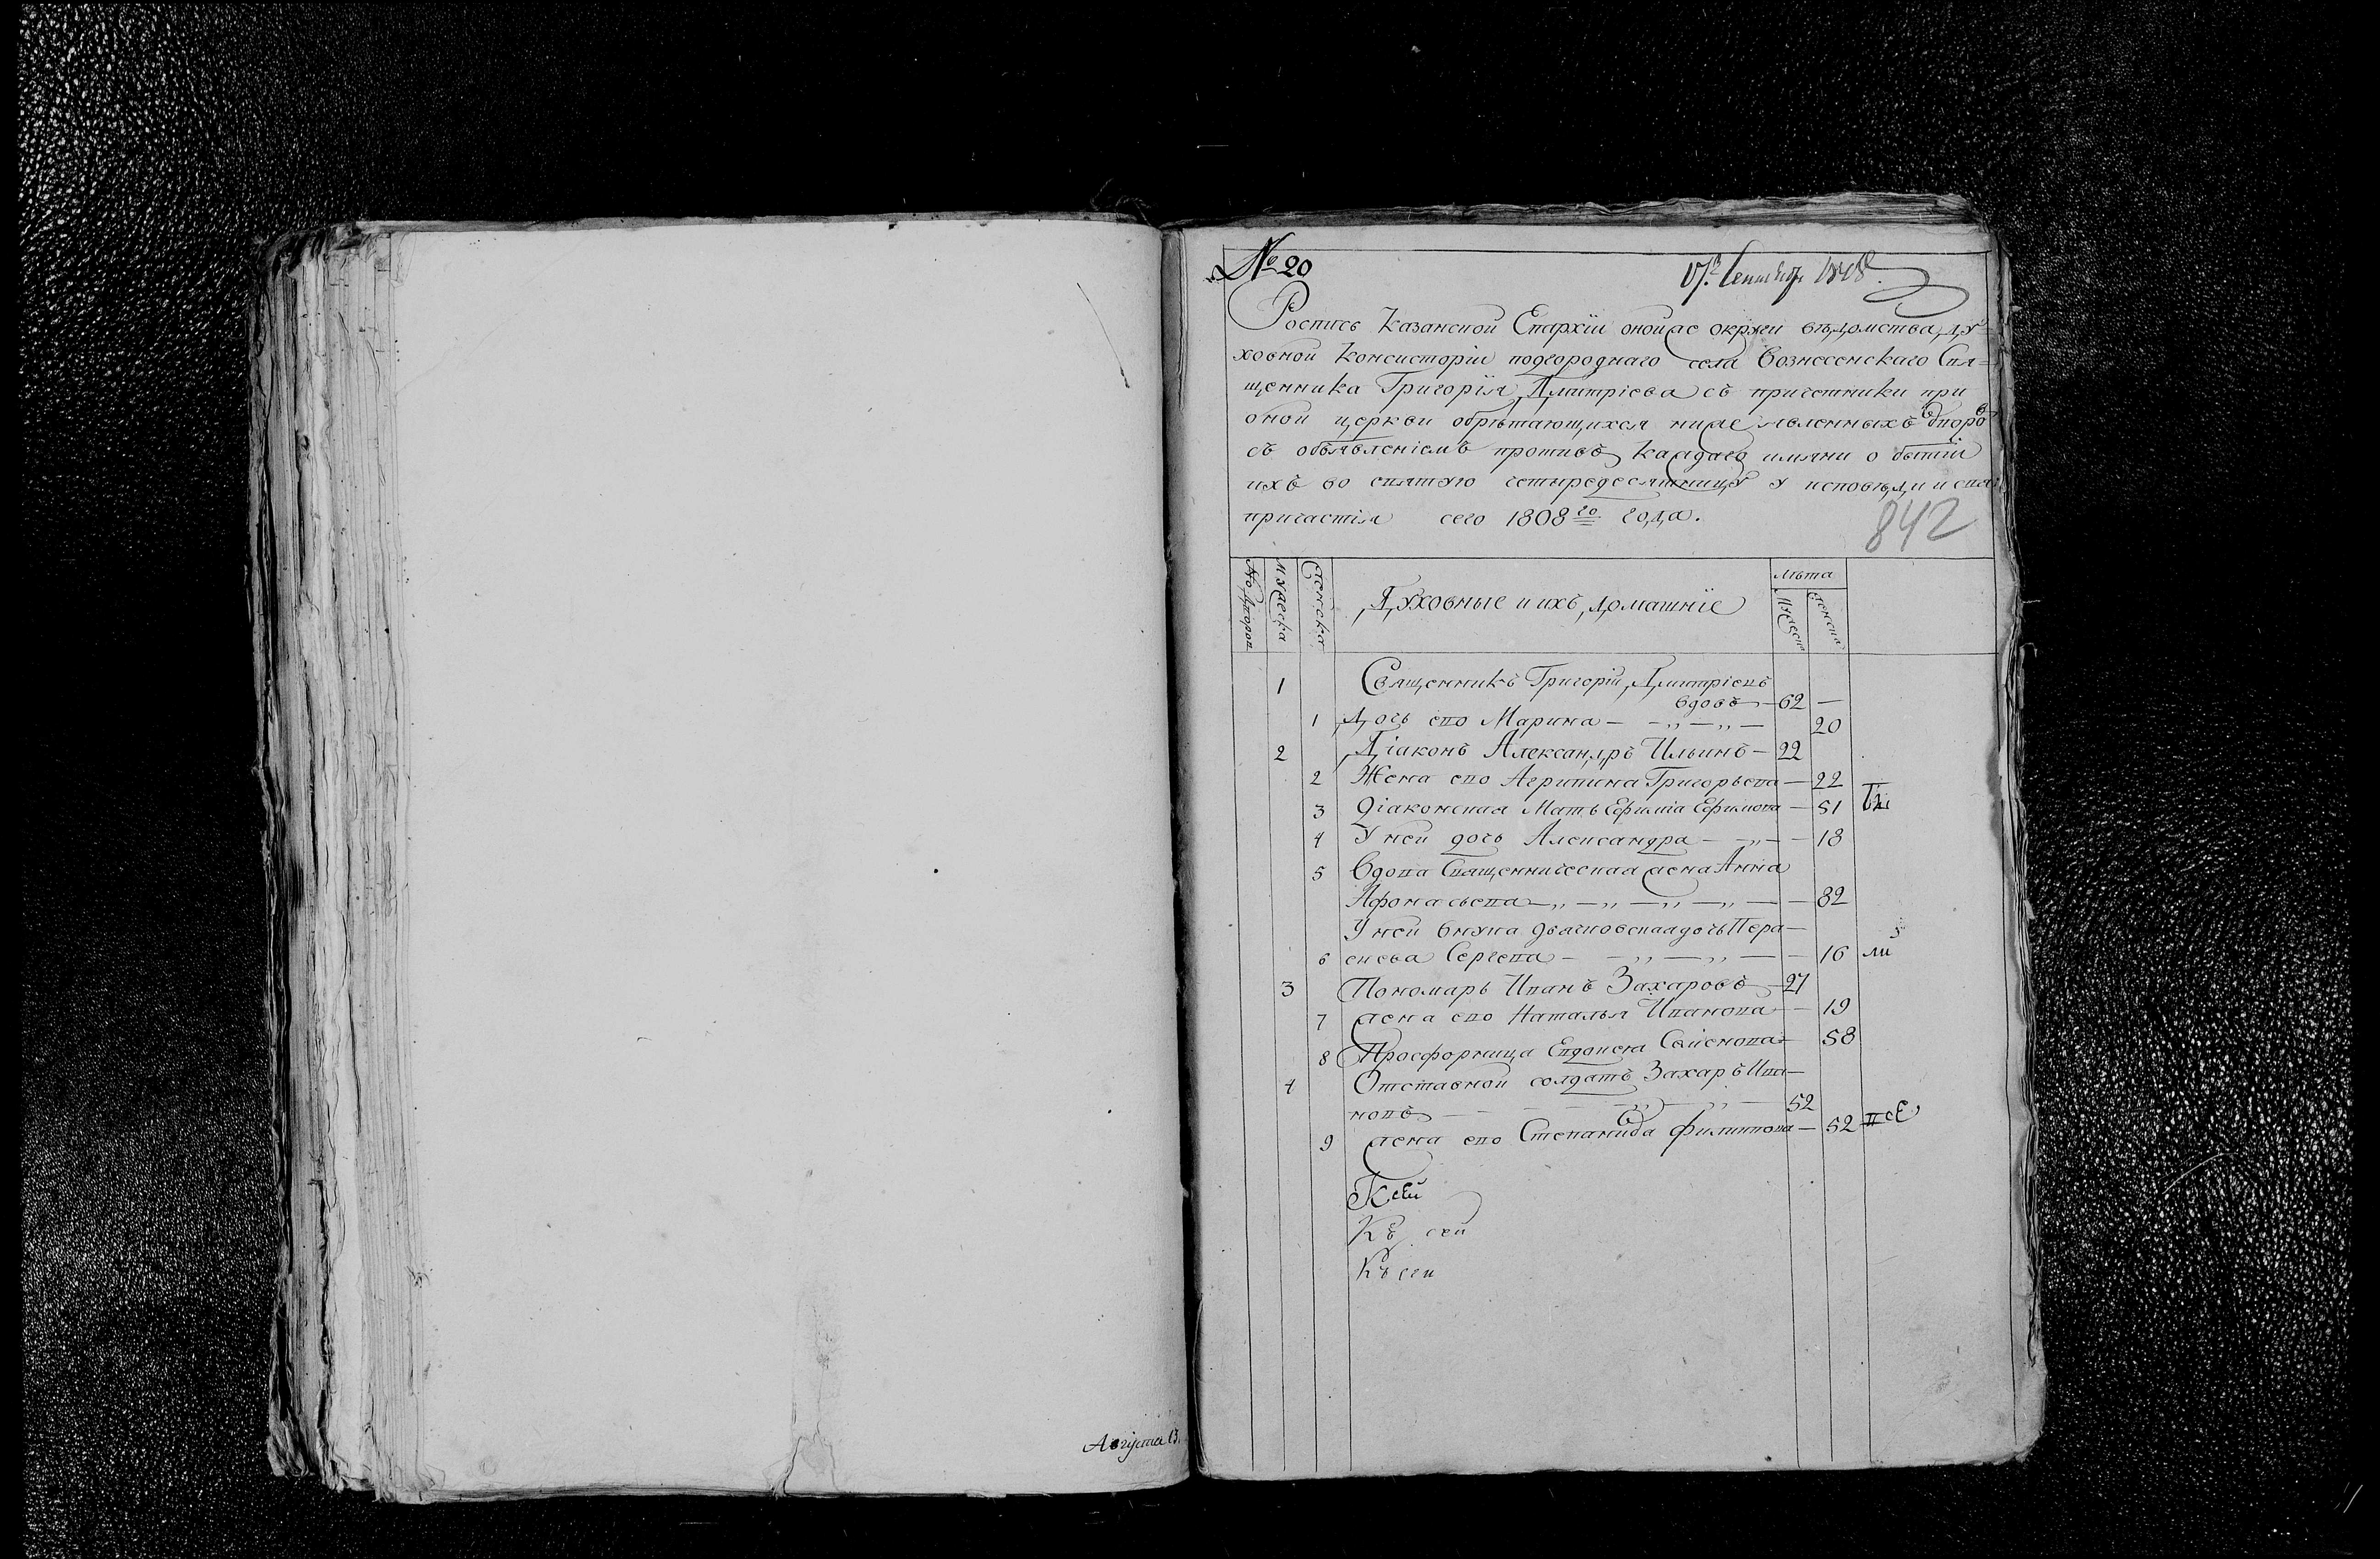 Августа 13.
№ 20
Сентября 1808
Роспись Казанской Епархіи оной же округи вѣдомства ду-
ховной Консисторіи подгороднаго села Вознесенскаго Свя=
щенника Григорія Дмитріева съ причетники при
оной церкви обрѣтающихся ниже явленныхъ
съ объявленіемъ противъ каждаго имяни о бытіи
ихъ во святую четыредесятницу у исповѣди и свя
причастія сего 1808 го года.
842
Мужеска
Женска
Духовные и ихъ домашніе
лѣта
Мужеск
женска
1 Священникъ Григорій Дмитріевъ
вдовъ — 62 —
1 Дочь ево Марина — 20
2 Діаконъ Александръ Ильинъ — 22
2 Жена ево Агрипина Григорьева — 22
3 Діаконская Мать Ефимія Ефимова — 51
4 У ней дочь Александра — 18
5 Вдова Священническая жена Анна
Афонасьева — 82
У ней внука дьячковская дочь Пера—
6 скева Сергева — 16 ли
3 Пономарь Иванъ Захаровъ — 27
7 жена ево Наталья Иванова — 19
8 Просфорница Евдокея Семенова 58
4 Отставной солдатъ Захаръ Ива—
новъ — 52
9 жена ево Степанида Филиппова — 52 псе
К сей
Къ сей
Къ сеи